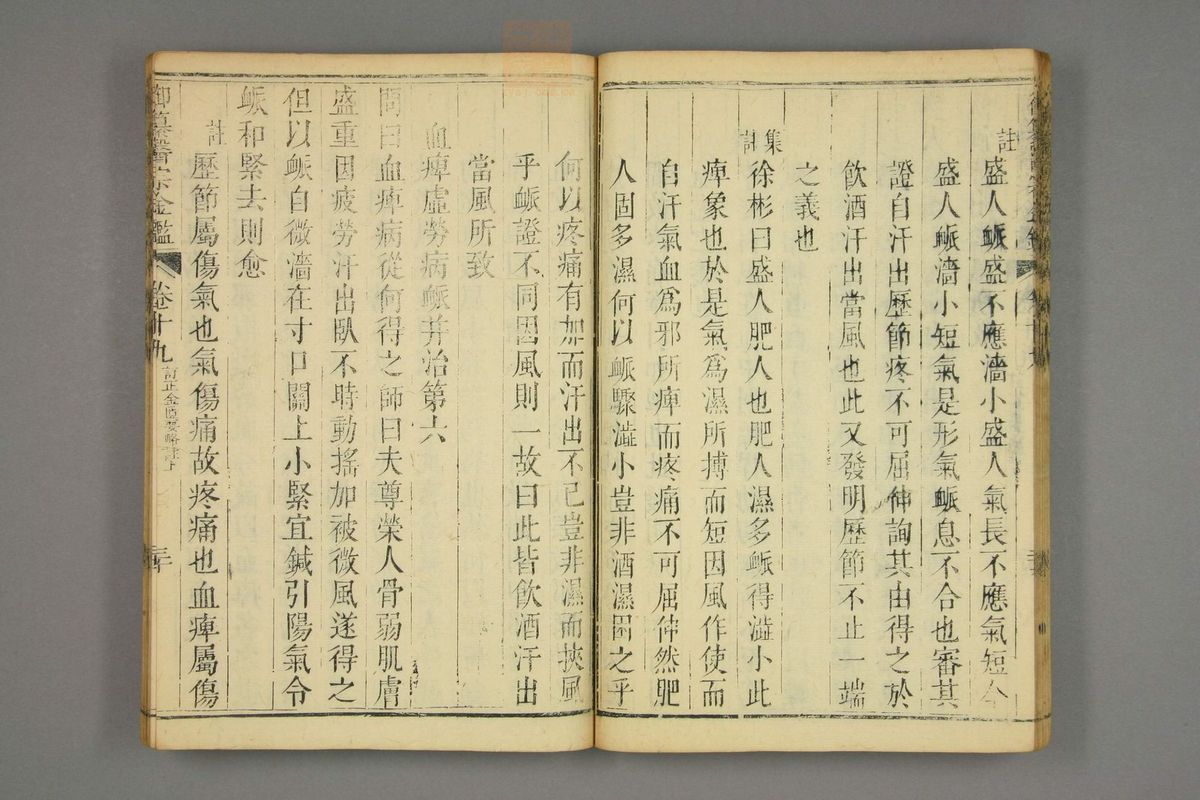 註
盛人䘑盛不應濇小盛人氣長不應氣短今
盛人䘑濇小短氣是形氣䘑息不合也審其
證自汗出歷節疼不可屈伸詢其由得之於
飲酒汗出當風也此又發明歷節不止一端
之義也
集註
徐彬曰盛人肥人也肥人濕多䘑得澁小此
痺象也於是氣為濕所搏而短因風作使而
自汗氣血為邪所痺而疼痛不可屈伸然肥
人固多濕何以䘑驟澁小豈非酒濕困之乎
何以疼痛有加而汗出不已豈非濕而挾風
乎䘑證不同因風則一故曰此皆飲酒汗出
當風所致
血痺虛勞病䘑并治第六
問曰血痺病從何得之師曰夫尊榮人骨弱肌膚
盛重因疲勞汗出臥不時動搖加被微風遂得之
但以䘑自微濇在寸口關上小緊宜鍼引陽氣令
䘑和緊去則愈
註
歷節屬傷氣也氣傷痛故疼痛也血痺屬傷
御纂醫宗金鑑
卷十九
訂正金匱要略註
三十